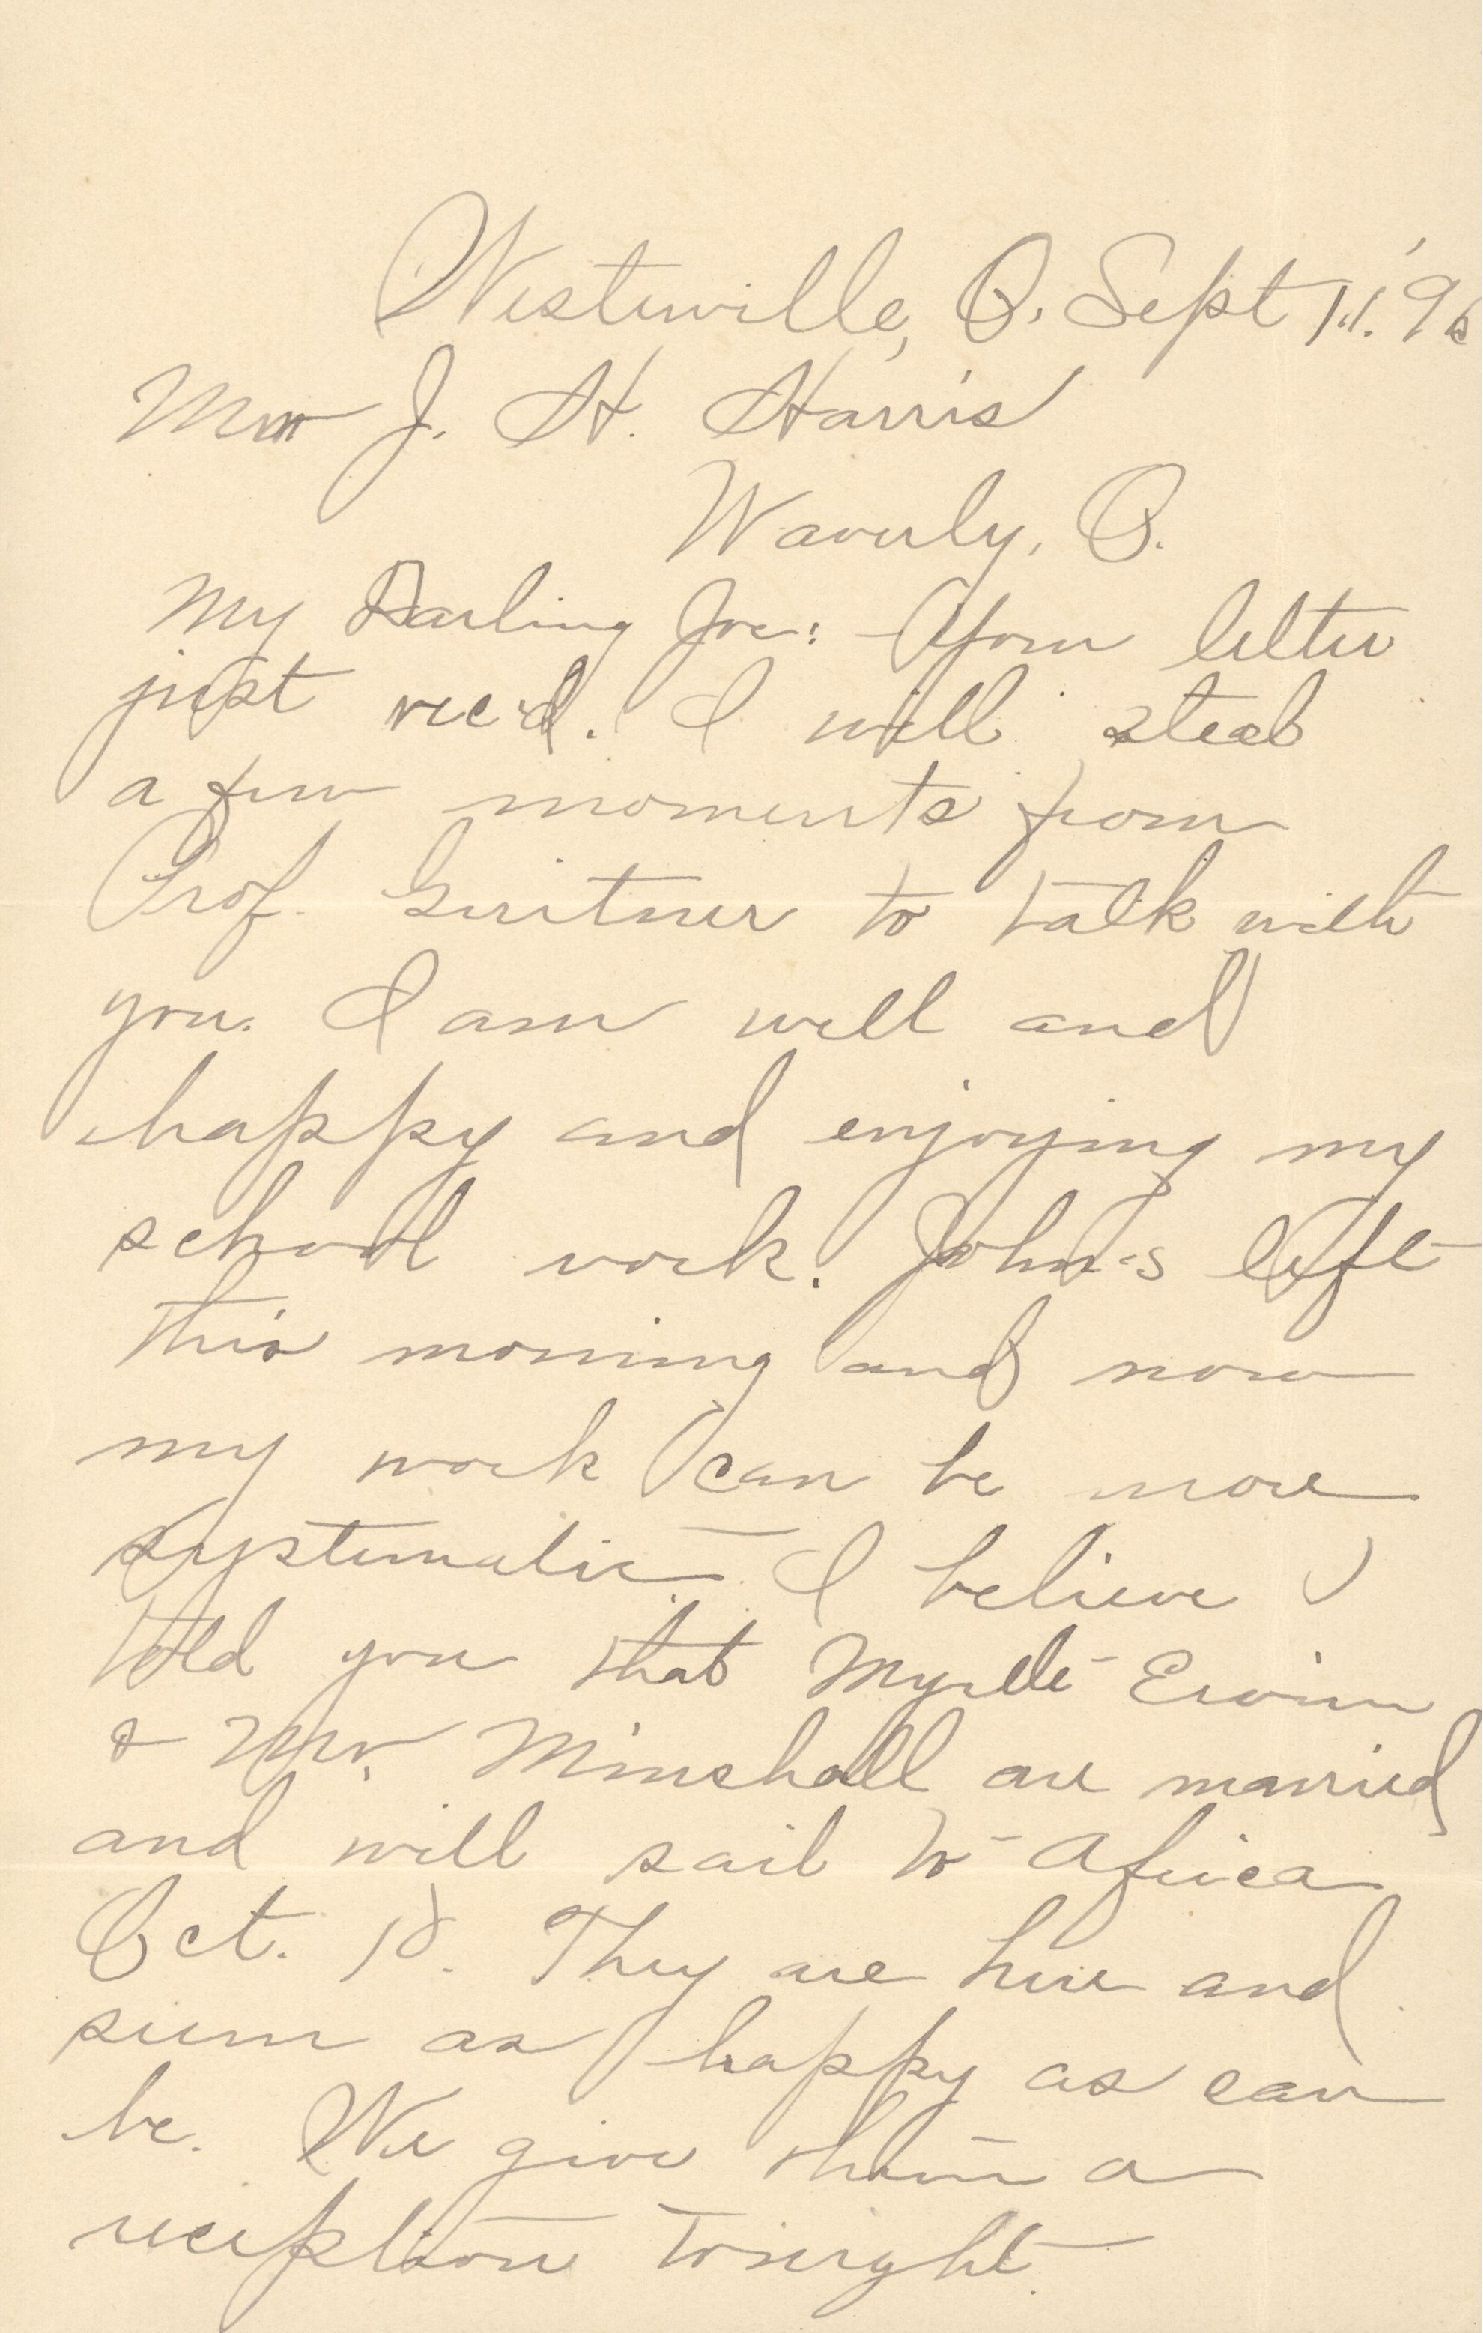 Westerville, O. Sept 11. '96
J. H. Harris
Waverly, O.
My Darling Joe: Your letter
just rec'd. I will steal
a few moments from
Prof. Guitner to talk with
you. I am well and
happy and enjoying my
school work. John's left
this morning and now
my work can be more
systematic. I believe I
told you that Myrtle Ervin
& Mr. Minshall are married
and will sail to Africa
Oct. 10. They are here and
seem as happy as can
be. We give them a
reception tonight.